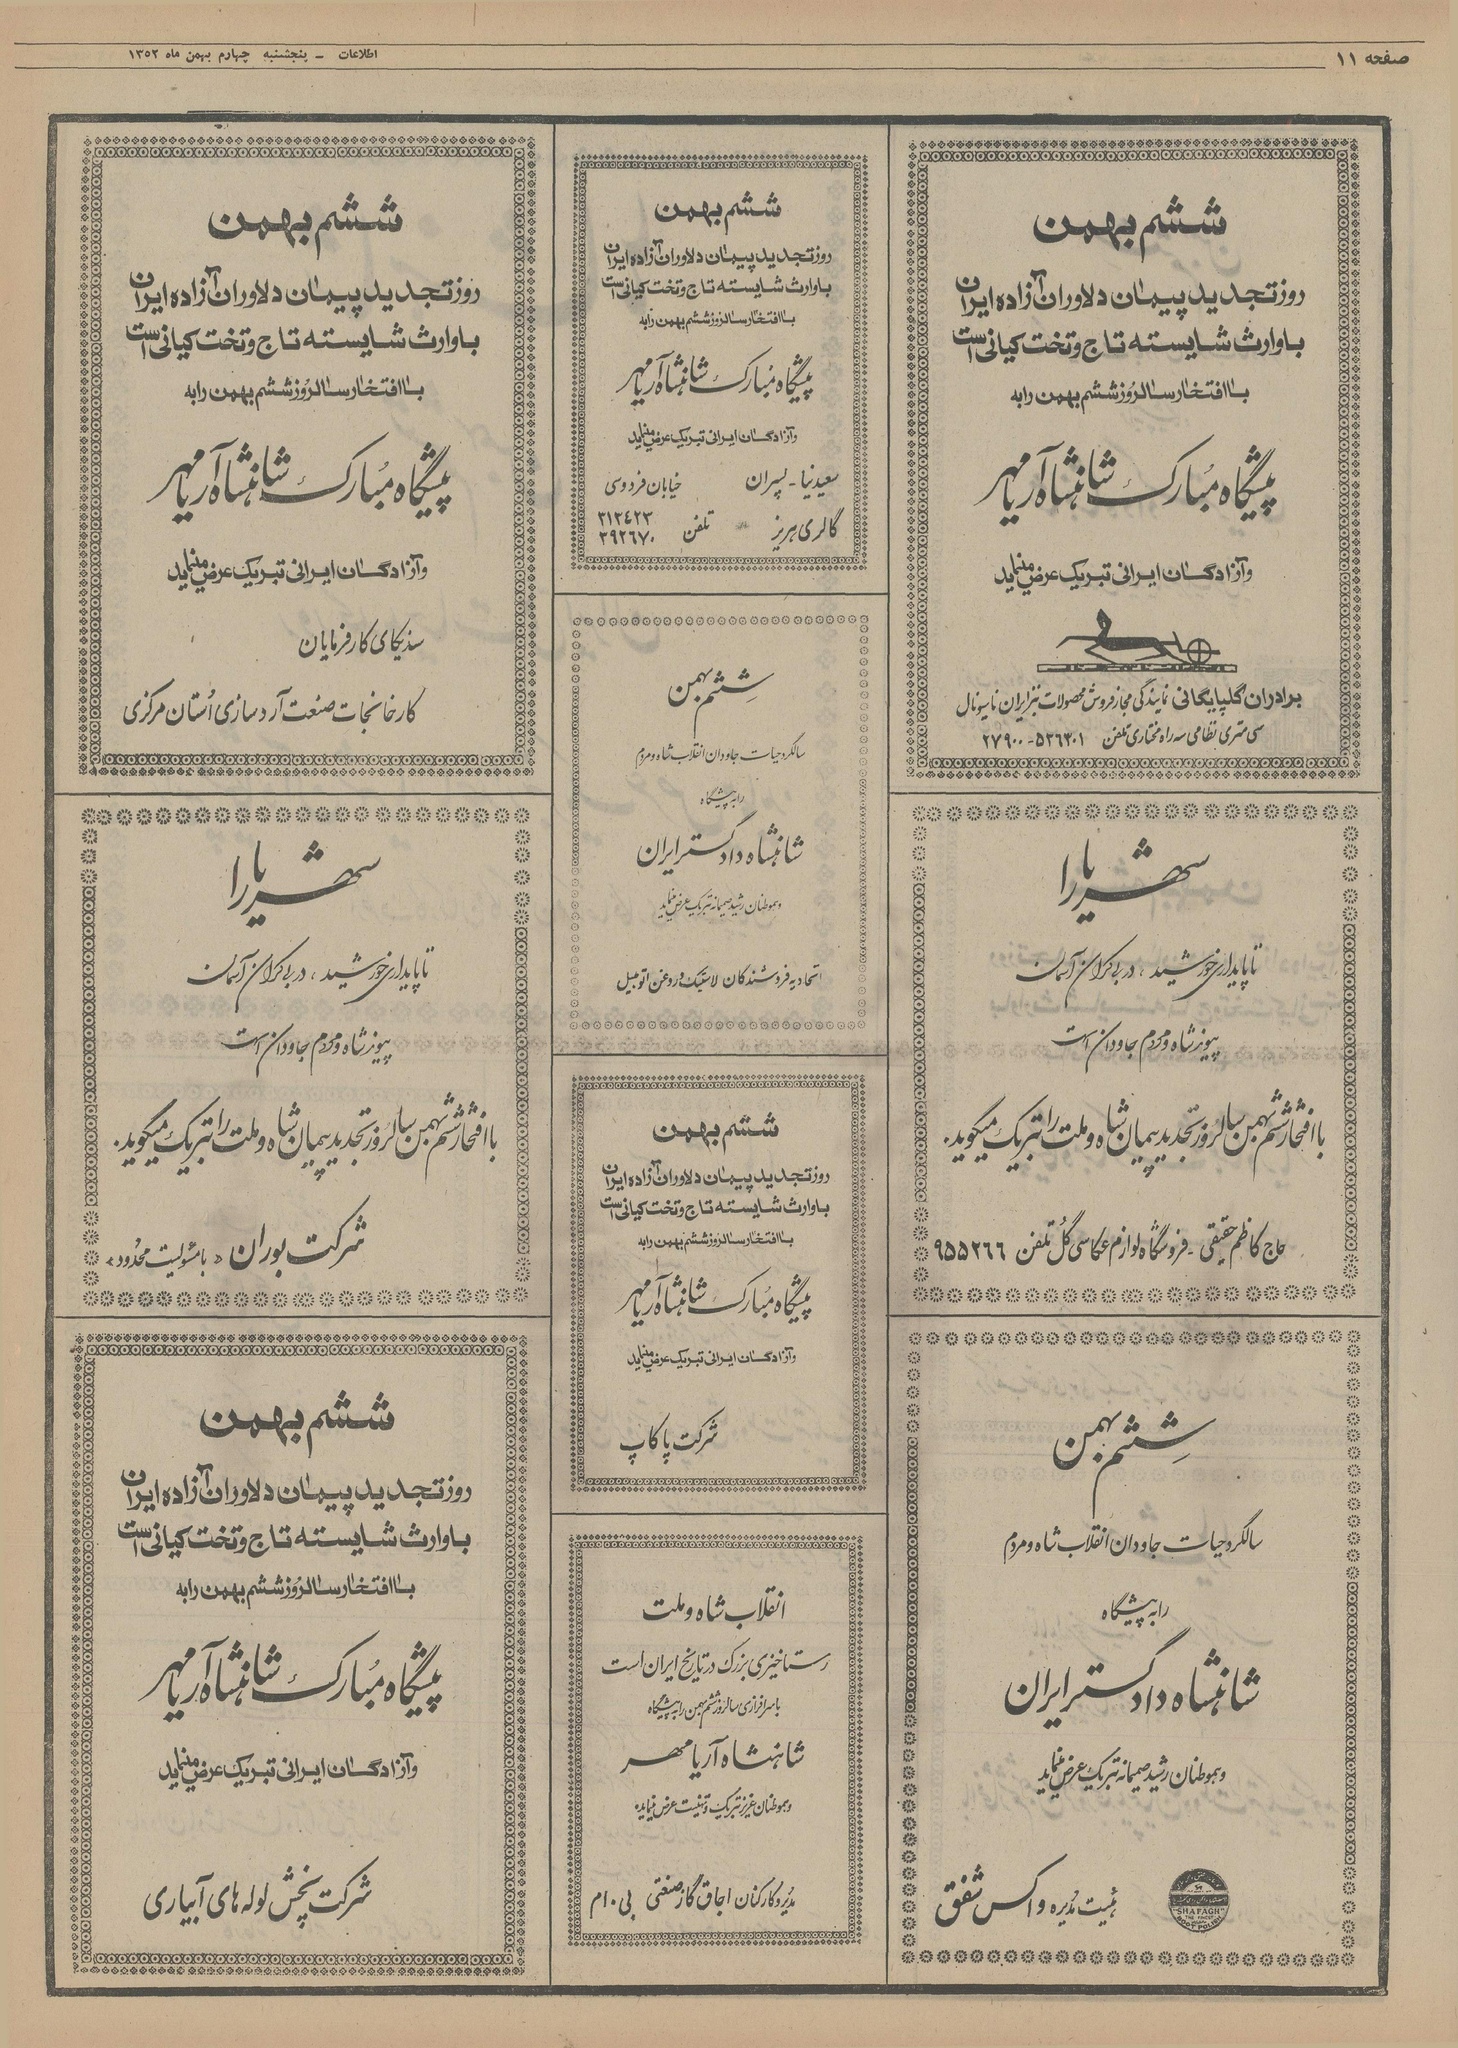 صفحه ۱۱
اطلاعات - پنجشنبه چهارم بهمن ماه ۱۳۵۲
ششم بهمن
روز تجدید پیمان دلاوران آزاده ایران
با وارث شایسته تاج و تخت کیانی است
با افتخار سالروز ششم بهمن را به
پیشگاه مبارک شاهنشاه آریامهر
و آزادگان ایرانی تبریک عرض مینماید
برادران گلپایگانی نمایندگی مجاز فروش محصولات تیز ایران ناسیونال
سی متری نظامی سه راه مختاری تلفن ۵۳۶۴۰۱-۲۷۹۰۰
شهریارا
تا پایداری خورشید، در بی کران آسمان
پیوند شاه و مردم جاودان است
با افتخار ششم بهمن سالروز تجدید پیمان شاه و ملت را تبریک میگوید.
حاج کاظم حقیقی - فروشگاه لوازم عکاسی گل تلفن ۹۵۵۲۶۶
ششم بهمن
سالگرد حیات جاودان انقلاب شاه و مردم
را به پیشگاه
شاهنشاه دادگستر ایران
و هموطنان رشید صمیمانه تبریک عرض مینماید
هیئت مدیره واکس شفق
"SHAFAGH"
THE FINEST
BOOT POLISH
ششم بهمن
روز تجدید پیمان دلاوران آزاده ایران
با وارث شایسته تاج و تخت کیانی است
با افتخار سالروز ششم بهمن را به
پیشگاه مبارک شاهنشاه آریامهر
و آزادگان ایرانی تبریک عرض مینماید
سعیدنیا - پسران خیابان فردوسی
گالری هریز - تلفن ۳۱۲۴۲۳
۳۹۲۶۷۰
ششم بهمن
سالگرد حیات جاودان انقلاب شاه و مردم
را به پیشگاه
شاهنشاه دادگستر ایران
و هموطنان رشید صمیمانه تبریک عرض مینماید
اتحادیه فروشندگان لاستیک و روغن اتومبیل
ششم بهمن
روز تجدید پیمان دلاوران آزاده ایران
با وارث شایسته تاج و تخت کیانی است
با افتخار سالروز ششم بهمن را به
پیشگاه مبارک شاهنشاه آریامهر
و آزادگان ایرانی تبریک عرض مینماید
شرکت پاکاپ
انقلاب شاه و ملت
رستاخیزی بزرگ در تاریخ ایران است
با سرافرازی سالروز ششم بهمن را به پیشگاه
شاهنشاه آریامهر
و هموطنان عزیز تبریک و تهنیت عرض مینماید
مدیر و کارکنان اجاق گاز صنعتی بی.ام
ششم بهمن
روز تجدید پیمان دلاوران آزاده ایران
با وارث شایسته تاج و تخت کیانی است
با افتخار سالروز ششم بهمن را به
پیشگاه مبارک شاهنشاه آریامهر
و آزادگان ایرانی تبریک عرض مینماید
سندیکای کارفرمایان
کارخانجات صنعت آردسازی استان مرکزی
شهریارا
تا پایداری خورشید، در بی کران آسمان
پیوند شاه و مردم جاودان است
با افتخار ششم بهمن سالروز تجدید پیمان شاه و ملت را تبریک میگوید.
شرکت بوران «با مسئولیت محدود»
ششم بهمن
روز تجدید پیمان دلاوران آزاده ایران
با وارث شایسته تاج و تخت کیانی است
با افتخار سالروز ششم بهمن را به
پیشگاه مبارک شاهنشاه آریامهر
و آزادگان ایرانی تبریک عرض مینماید
شرکت پخش لوله های آبیاری